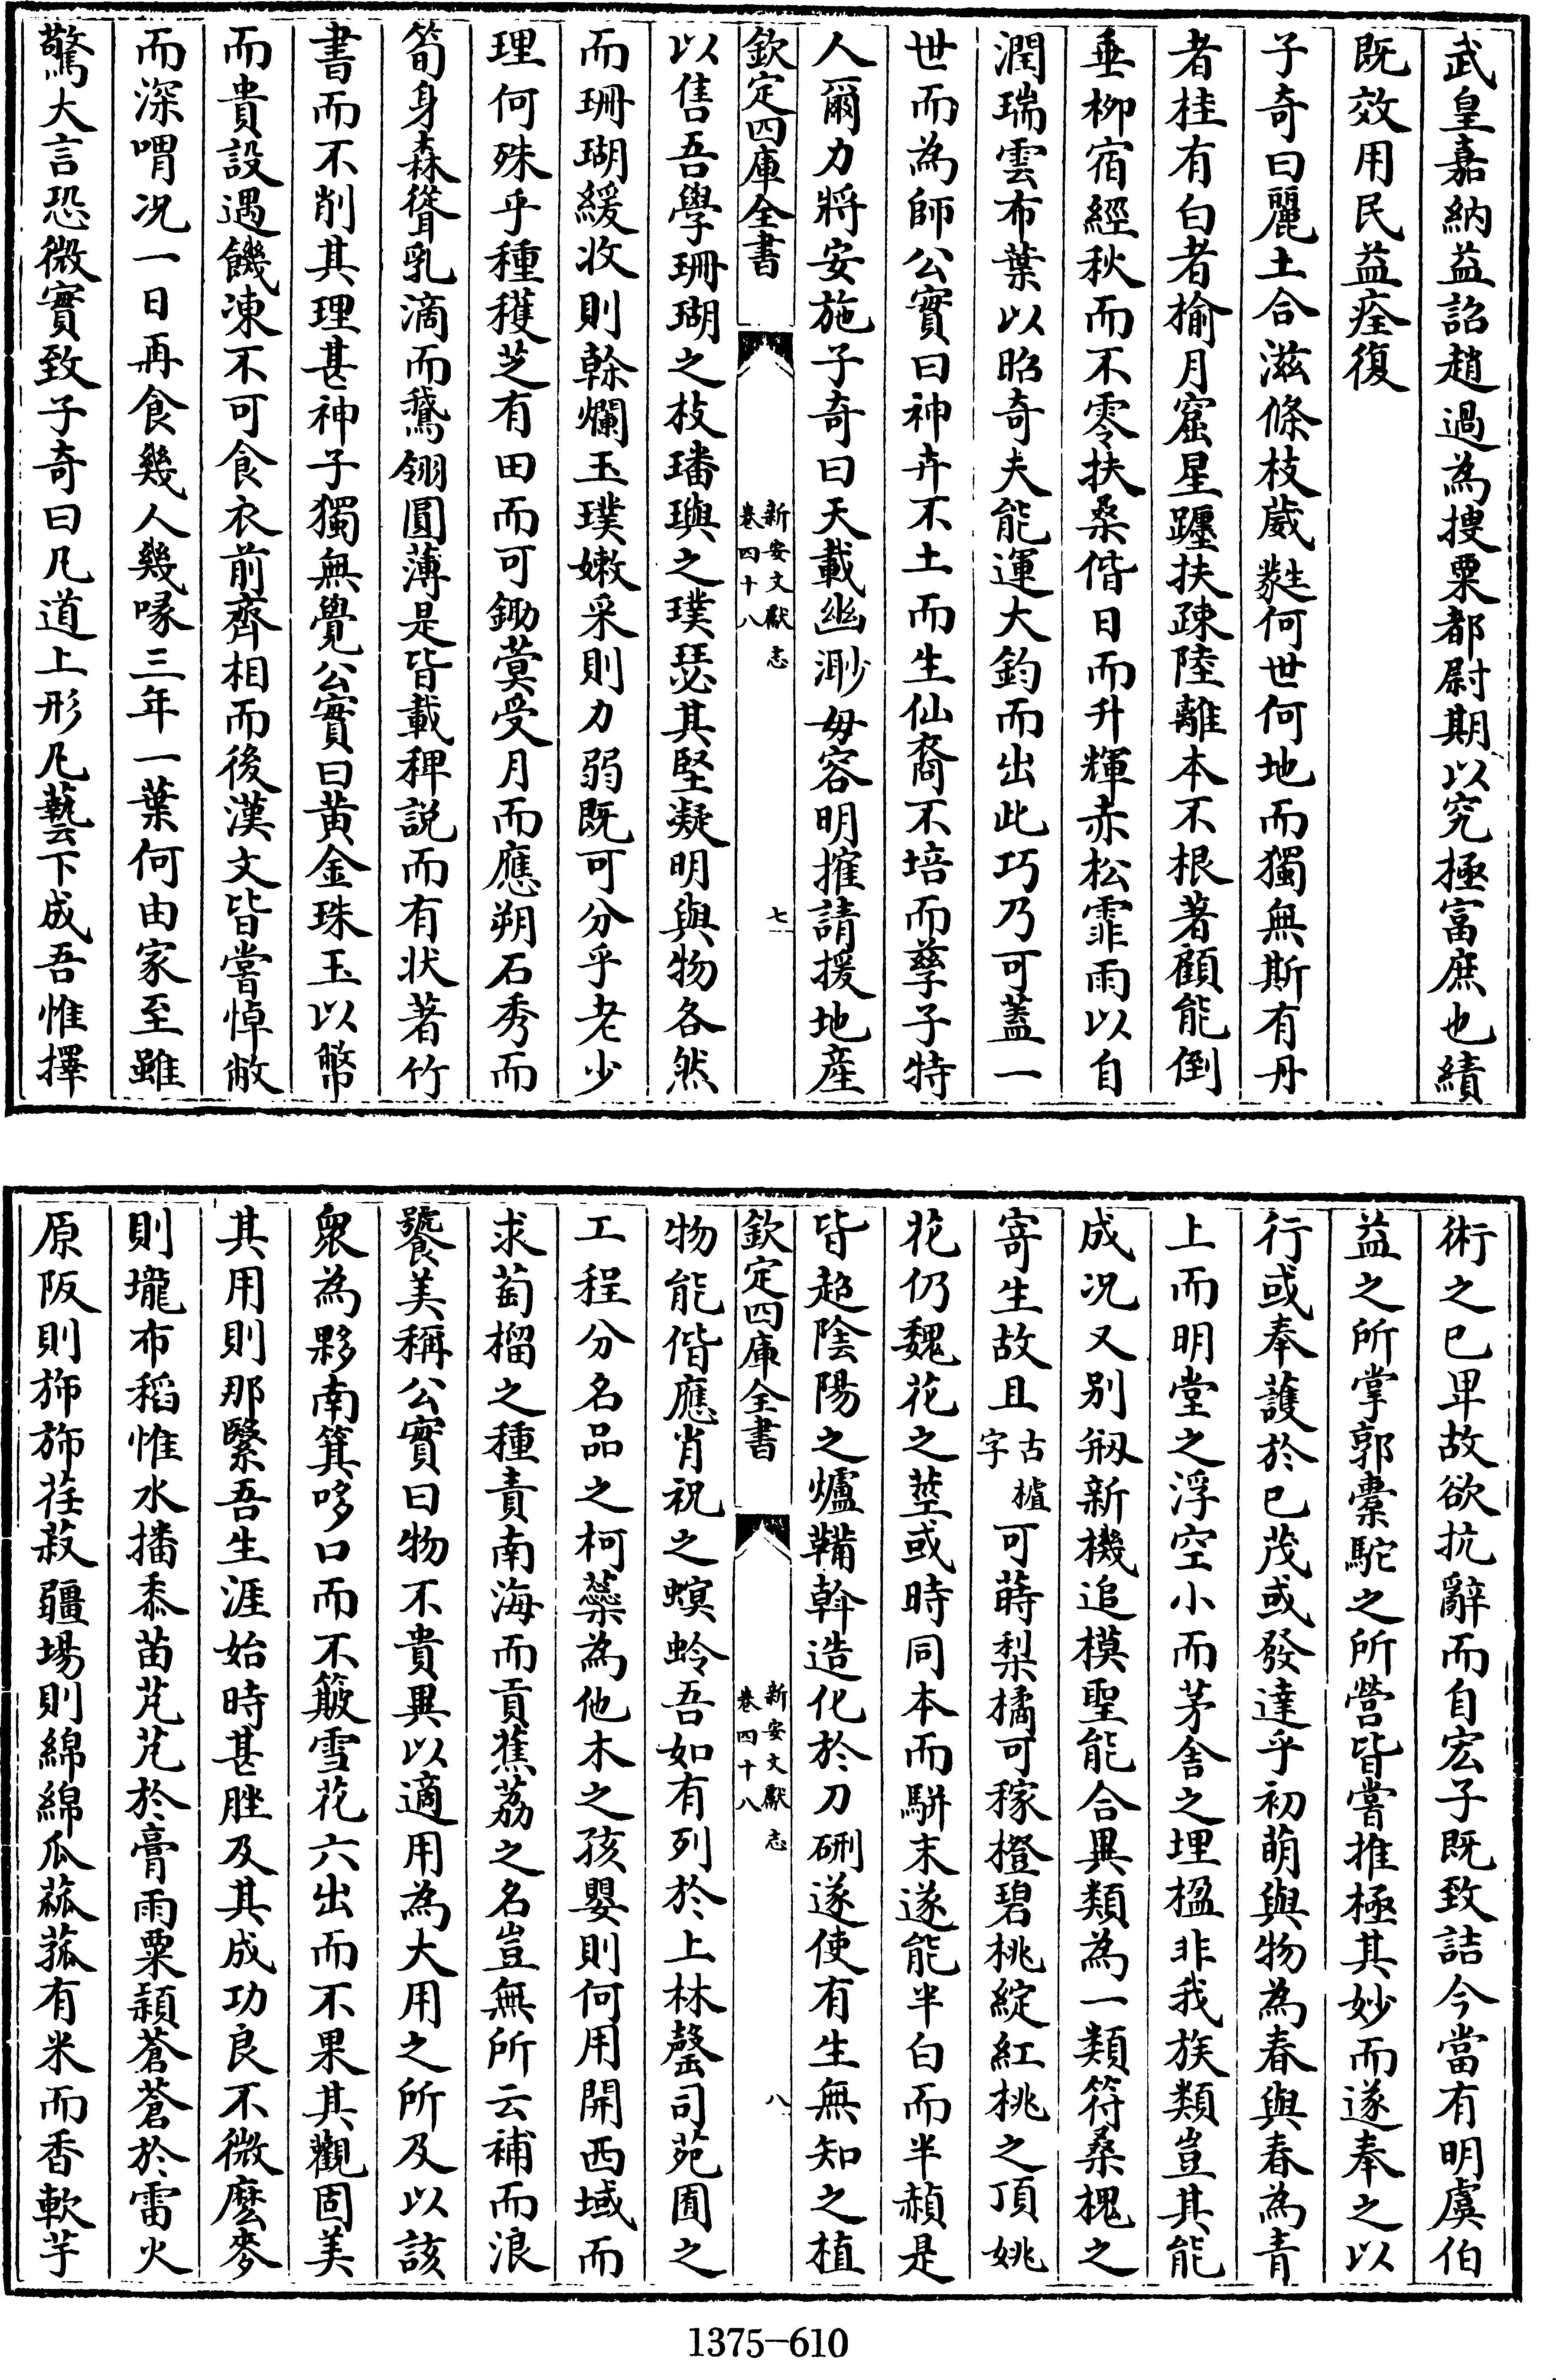 武皇嘉納益詔趙過為搜粟都尉期以究極富庶也績
既效用民益痊復
子奇曰麗土合滋條枝葳蕤何世何地而獨無斯有丹
者桂有白者榆月窟星躔扶疎陸離本不根著顧能倒
垂柳宿經秋而不零扶桑偕日而升輝赤松霏雨以自
潤瑞雲布葉以昭奇夫能運大鈞而出此巧乃可蓋一
世而為師公實曰神卉不土而生仙裔不培而孳子特
人爾力將安施子奇曰天載幽渺毋容明搉請援地産
欽定四庫全書
新安文獻志
卷四十八
七
以售吾學珊瑚之枝璠璵之璞瑟其堅凝明與物各然
而珊瑚緩收則幹爛玉璞嫩采則力弱既可分乎老少
理何殊乎種穫芝有田而可鋤蓂受月而應朔石秀而
筍身森聳乳滴而鵞翎圓薄是皆載稗説而有状著竹
書而不削其理甚神子獨無覺公實曰黄金珠玉以幣
而貴設遇饑凍不可食衣前齊相而後漢文皆嘗悼慨
而深喟况一日再食幾人幾喙三年一葉何由家至雖
驚大言恐微實致子奇曰凡道上形凡藝下成吾惟擇
術之已卑故欲抗辭而自宏子既致詰今當有明虞伯
益之所掌郭橐駝之所營皆嘗推極其妙而遂奉之以
行或奉䕶於已茂或發達乎初萌與物為春與春為青
上而明堂之浮空小而茅舎之埋楹非我族類豈其能
成况又别剏新機追模聖能合異類為一類符桑槐之
寄生故且
古樝
字
可蒔梨橘可稼橙碧桃綻紅桃之頂姚
花仍魏花之莖或時同本而駢末遂能半白而半赬是
皆超陰陽之爐鞴斡造化於刀硎遂使有生無知之植
欽定四庫全書
新安文獻志
卷四十八
八
物能偕應肖祝之螟蛉吾如有列於上林罄司苑囿之
工程分名品之柯蘂為他木之孩嬰則何用開西域而
求萄榴之種責南海而貢蕉荔之名豈無所云補而浪
饕美稱公實曰物不貴異以適用為大用之所及以該
衆為夥南箕哆口而不簸雪花六出而不果其觀固美
其用則那繄吾生涯始時甚脞及其成功良不微麽麥
則壠布稻惟水播黍苗芃芃於膏雨粟頴蒼蒼於雷火
原阪則斾斾荏菽疆場則綿綿瓜蓏菰有米而香軟芋
1375-610